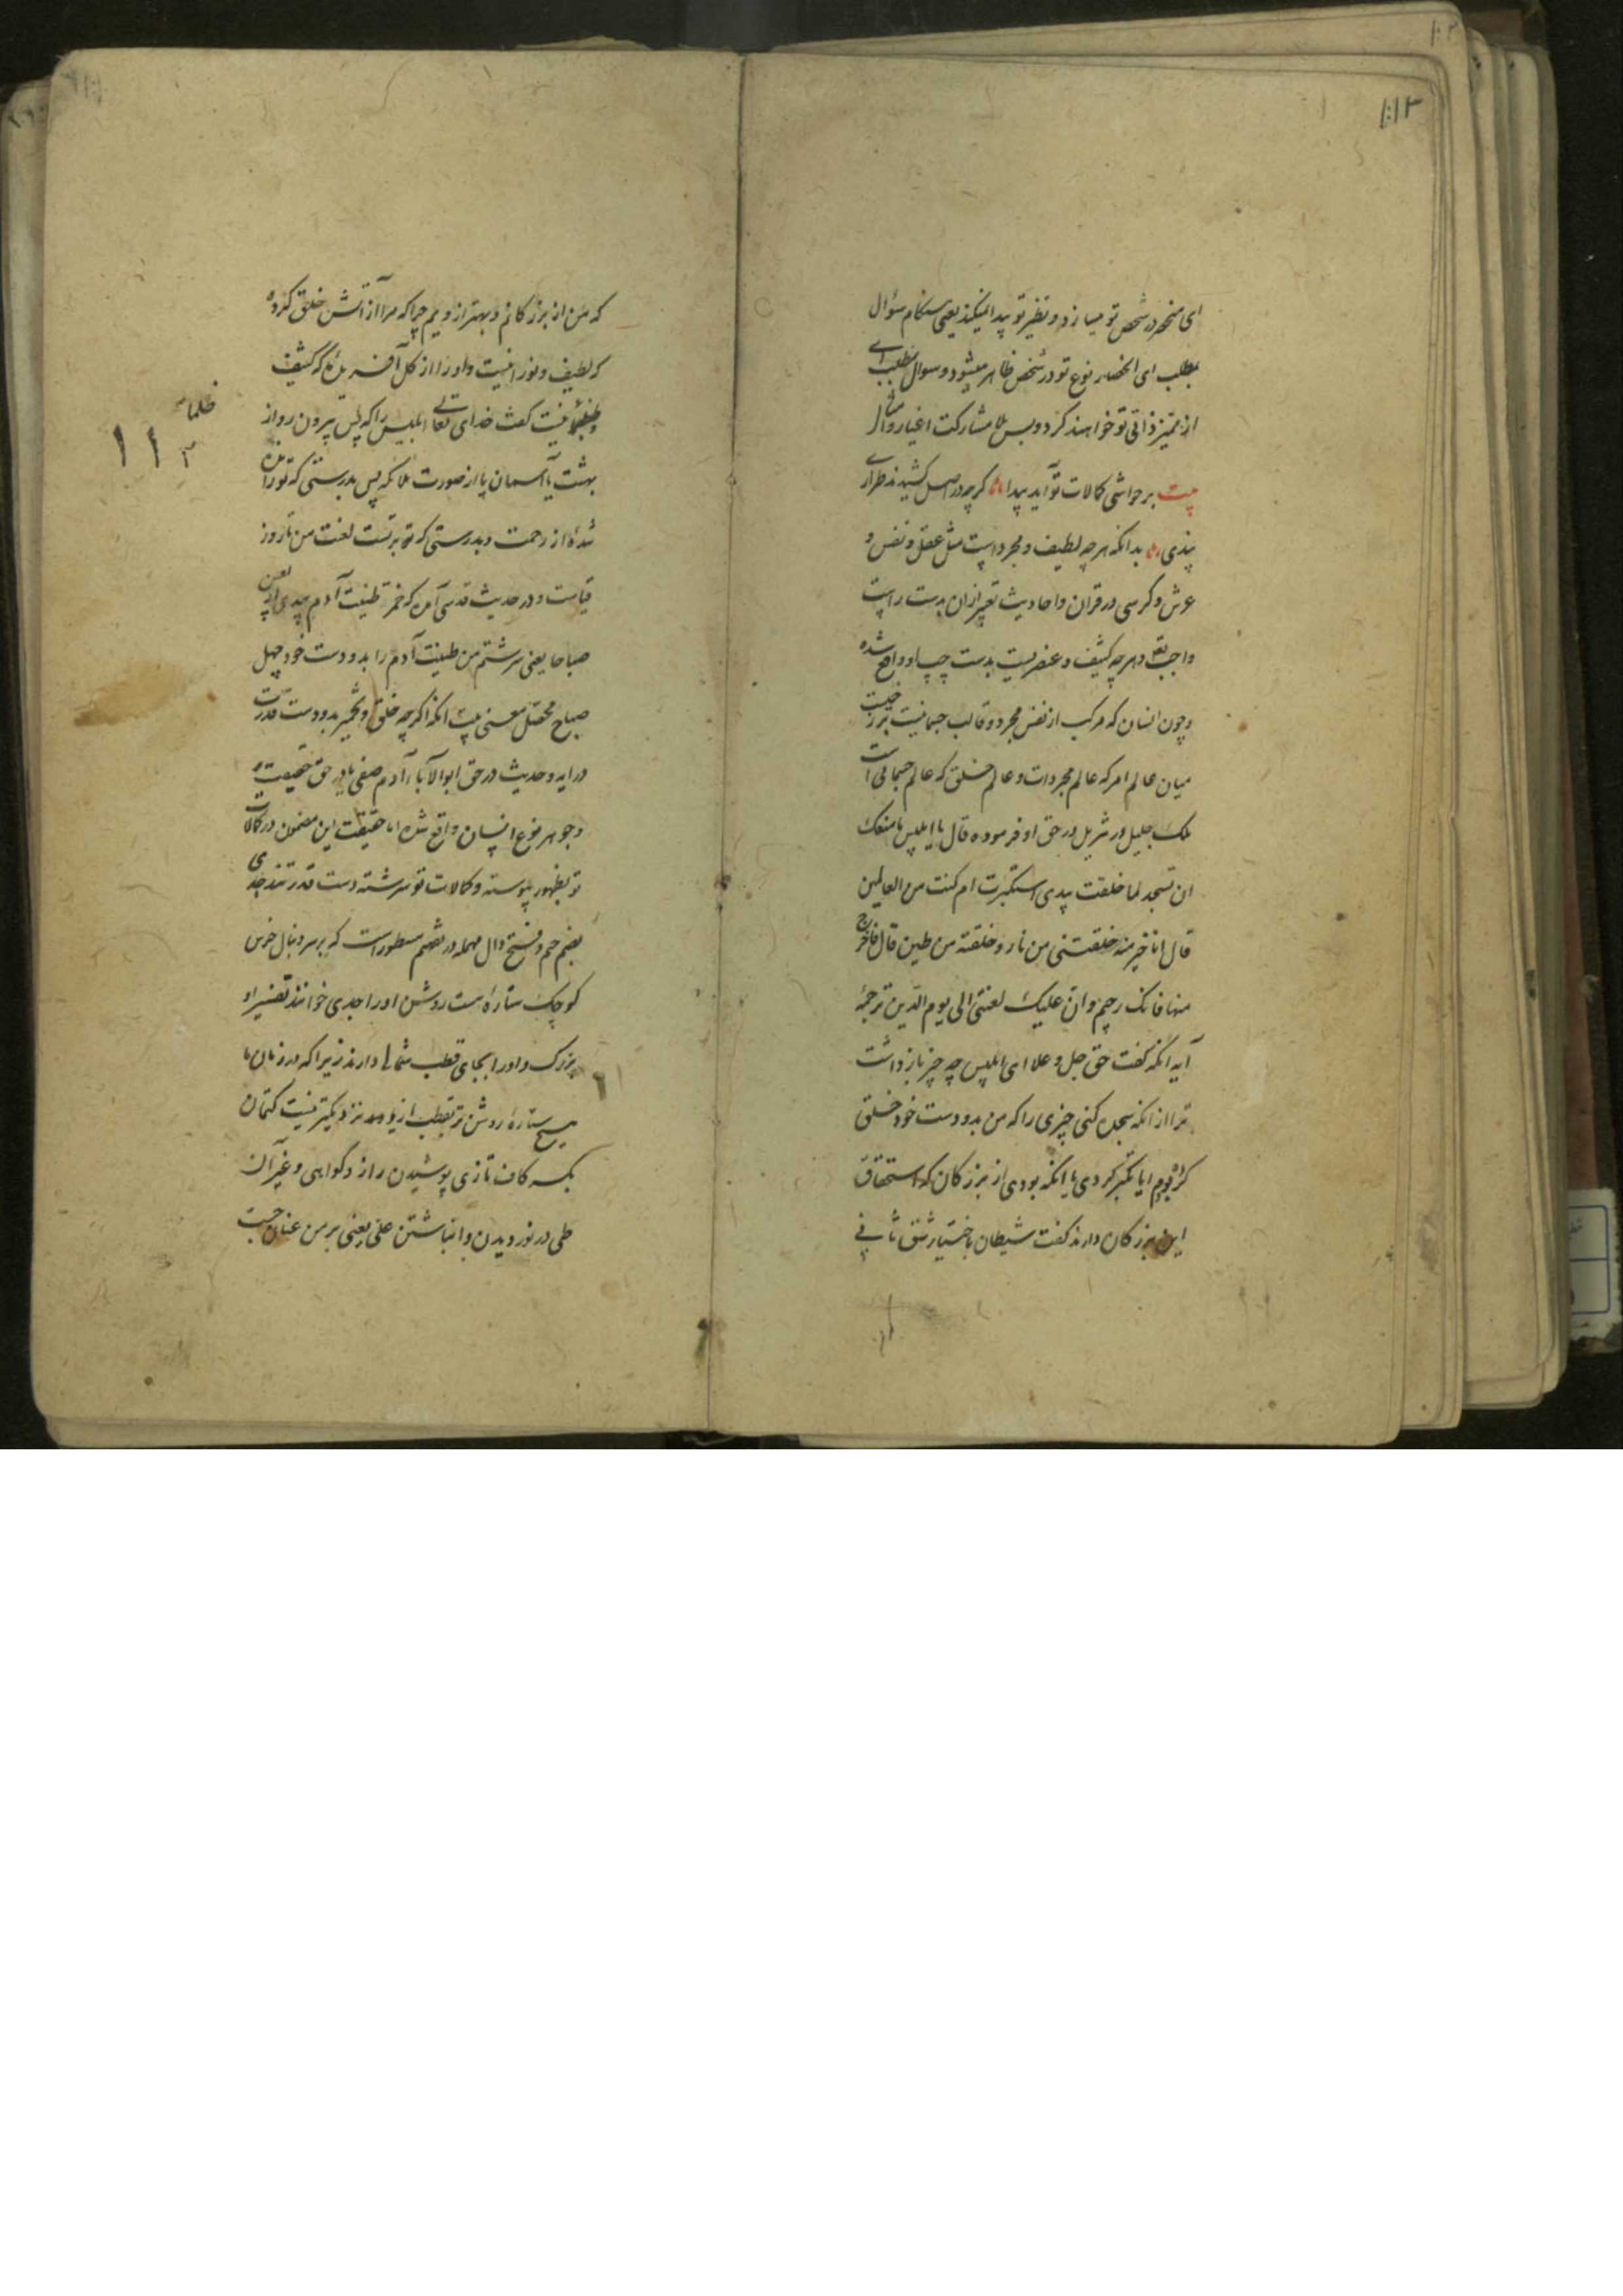 ۱۱۳
ای منحصر در شخص تو میسازد و نظیر تو پیدا نمیکند یعنی هنگام سؤال
بمطلب ای انحصار نوع تو در شخص ظاهر میشود و سوال بمطلب ای
از ممیز ذاتی تو خواهند کرد و بس بلا مشارکت اغیار و امثال
بیت بر حواشی کمالات تو آید پیدا گرچه در اصل کشیدند طرازی
بدانکه هرچه لطیف و مجرد است مثل عقل و نفس و
عرش و کرسی در قران و احادیث تعبیر ازان بدست راست
واجب تعالی و هرچه کثیف و عنصریست بدست چپ او واقع شده
و چون انسان که مرکب از نفس مجرد و قالب جسمانیت برزخیست
میان عالم امر که عالم مجردات و عالم خلق که عالم جسمانی است
ملک جلیل در تنزیل در حق او فرموده قال یا ابلیس ما منعک
ان تسجد لما خلقت بیدی استکبرت ام کنت من العالین
قال انا خیر منه خلقتنی من نار و خلقته من طین قال فاخرج
منها فانک رجیم و ان علیک لعنتی الی یوم الدین ترجمهٔ
آیه آنکه گفت حق جل و علا ای ابلیس چه چیز باز داشت
ترا از انکه سجده کنی چیزی را که من بدو دست خود خلق
کرده‌ام ایا تکبر کردی یا آنکه بودی از بزرگان که استحقاق
این بزرگان دارند گفت شیطان باختیار شق ثانی
که من از بزرگانم و بهتر از ویم چرا که مرا از آتش خلق کرده
که لطیف و نورانیست و او را از گل آفریده که کثیف
و ظلمانیست گفت خدای تعالی ابلیس را که پس بیرون رو از
بهشت یا آسمان یا از صورت ملائکه پس بدرستی که تو رانده
شدهٔ از رحمت و بدرستی که بر تست لعنت من تا روز
قیامت و در حدیث قدسی آمده که خمرت طینت آدم بیدی اربعین
صباحا یعنی سرشتم من طینت آدم را بدو دست خود چهل
صباح محصل معنی بیت آنکه اگرچه خلق و تخمیر بدو دست قدرت
در ایه و حدیث در حق ابوالآباء آدم صفی یا در حق حقیقت
و جوهر نوع انسان واقع شده اما حقیقت این مضمون در کمالات
تو بظهور پیوسته و کمالات تو سرشته دست قدرتند جدی
بضم جیم و فتح دال مهمله در تفهیم مسطور است که بر سر دنبال خرس
کوچک ستارهٔ است روشن او را جدی خوانند تصغیر او
بزرک و او را بجای قطب شمالی دارند زیرا که در زمان ما
هیچ ستارهٔ روشن تر بقطب ازو نزدیکتر نیست کتمان
بکسر کاف تازی پوشیدن راز و گواهی و غیر آن
طی در نوردیدن و انباشتن علی یعنی بر من عنان
ظلما
۱۱۳